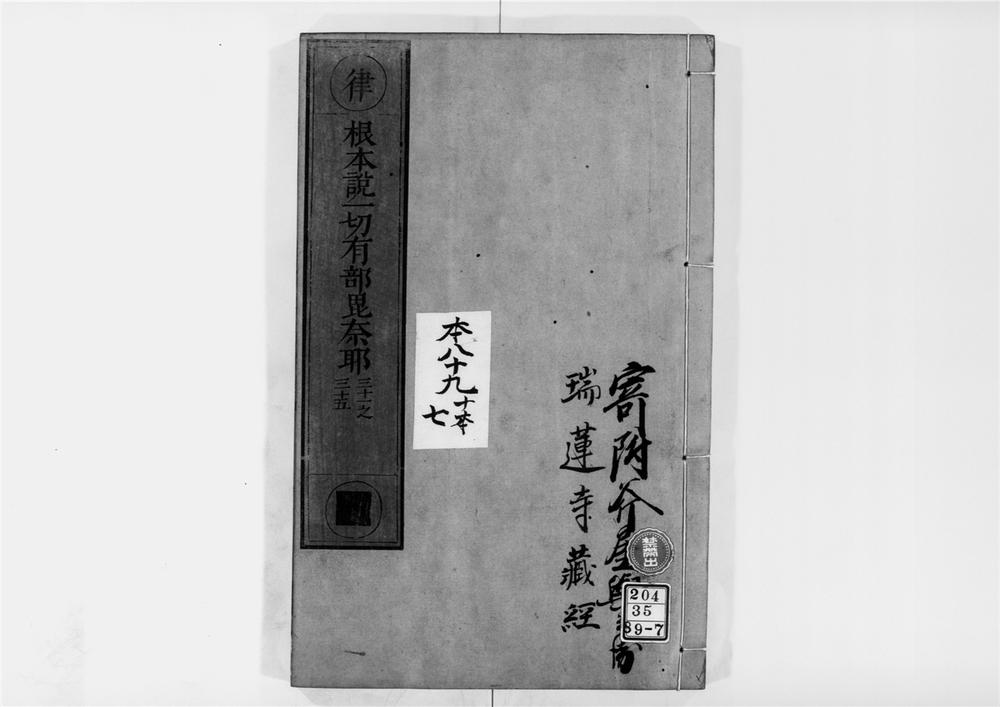 律
根本説一切有部毘奈耶
三十一之
三十五
本八十九
十本
七
寄附
瑞蓮寺藏經
禁帶出
204
35
89-7